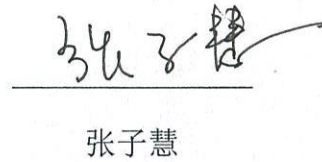 张子慧
张子慧